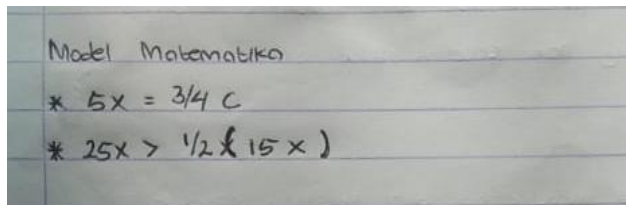 Model Matematika
* 5x = 3/4 C
* 25x > 1/2 ( 15 x )